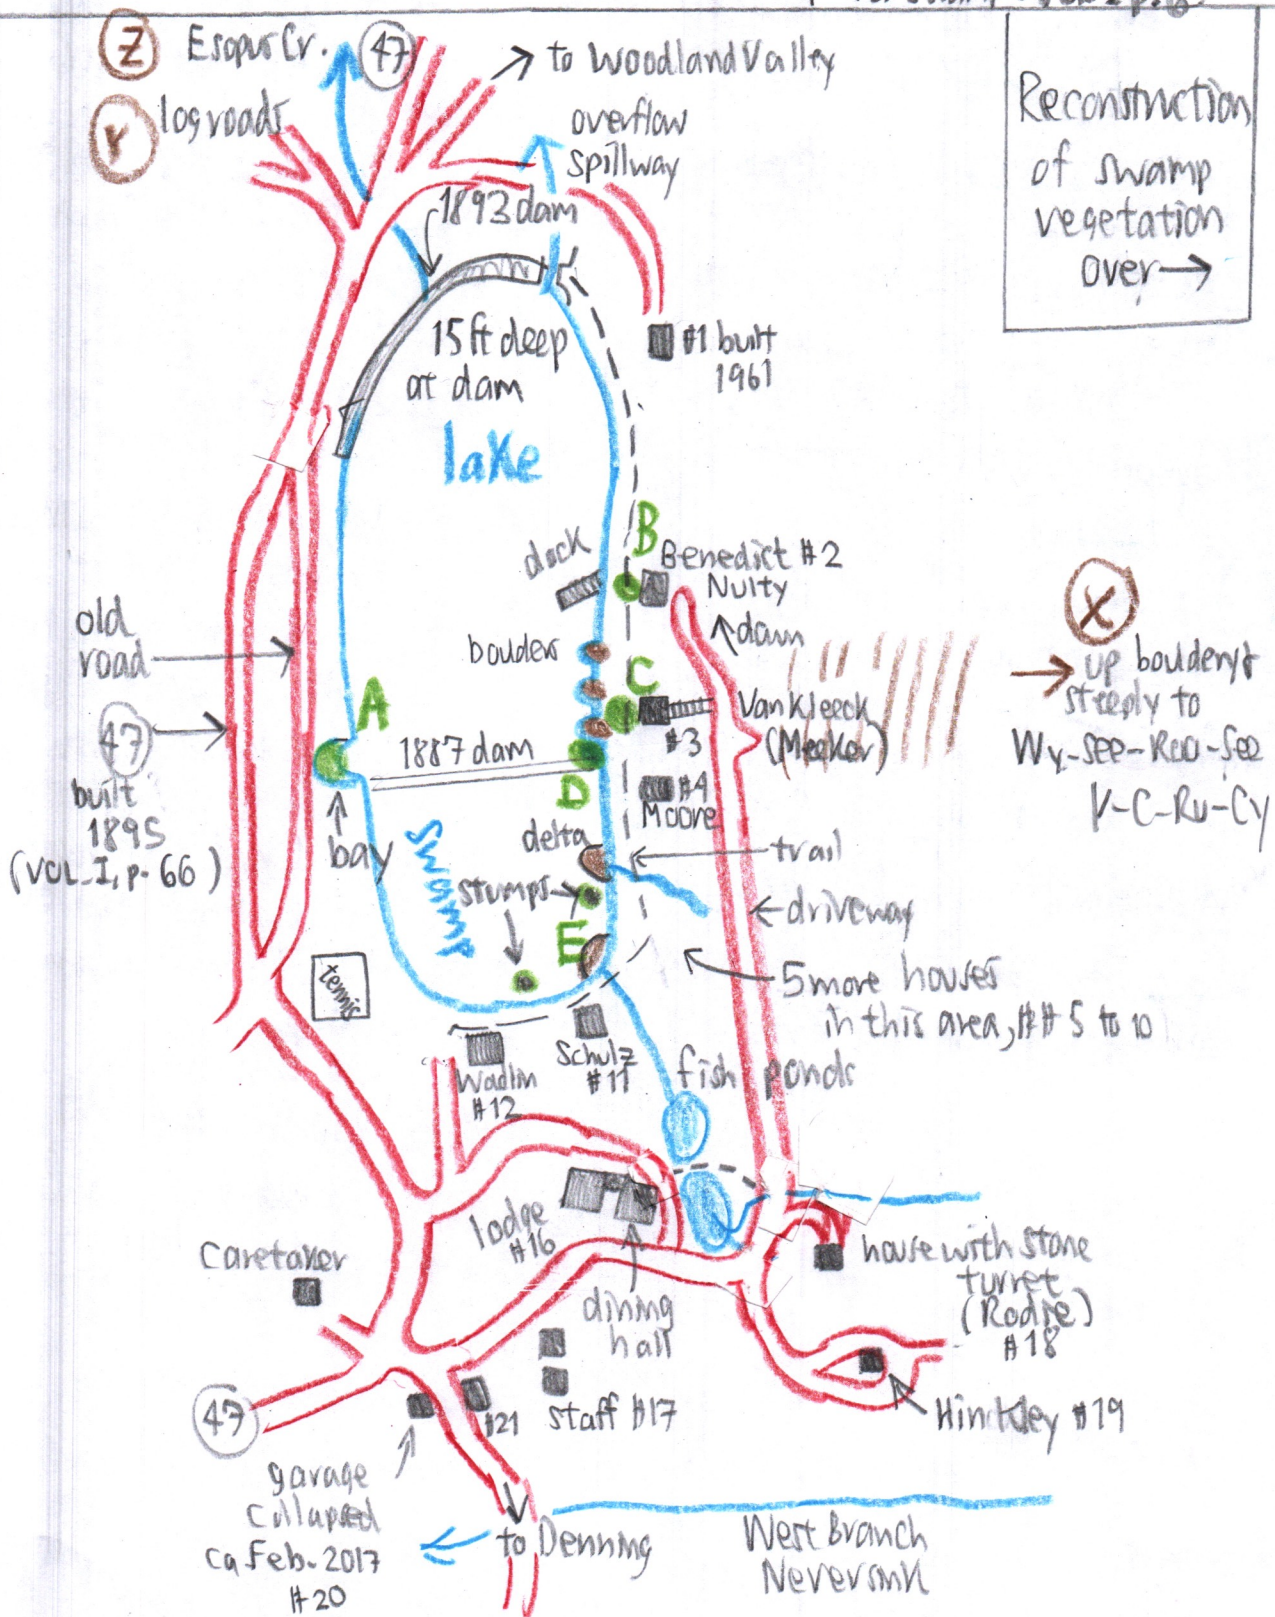 Z
Esopus Cr.
47
to Woodland Valley
Y
log roads
overflow
spillway
1893 dam
Reconstruction
of swamp
vegetation
over
15 ft deep
at dam
#1 built
1961
lake
B
dock
Benedict #2
Nulty
down
X
up bouldery &
steeply to
Wy-See-Roo-See
V-C-Ru-Cy
old
road
bouders
C
Van Kleeck
(Meeker)
#3
A
47
built
1895
(VOL. I, p. 66)
1887 dam
D
#4
Moore
bay
swamp
delta
trail
stumps
driveway
E
tennis
5 more houses
in this area, ## 5 to 10
Schulz
#11
Wadlin
#12
fish ponds
lodge
#16
Caretaker
house with stone
turret
(Rodie)
#18
dining
hall
47
#21
staff #17
Hinckley #19
garage
collapsed
ca Feb. 2017
#20
to Denning
West Branch
Neversink